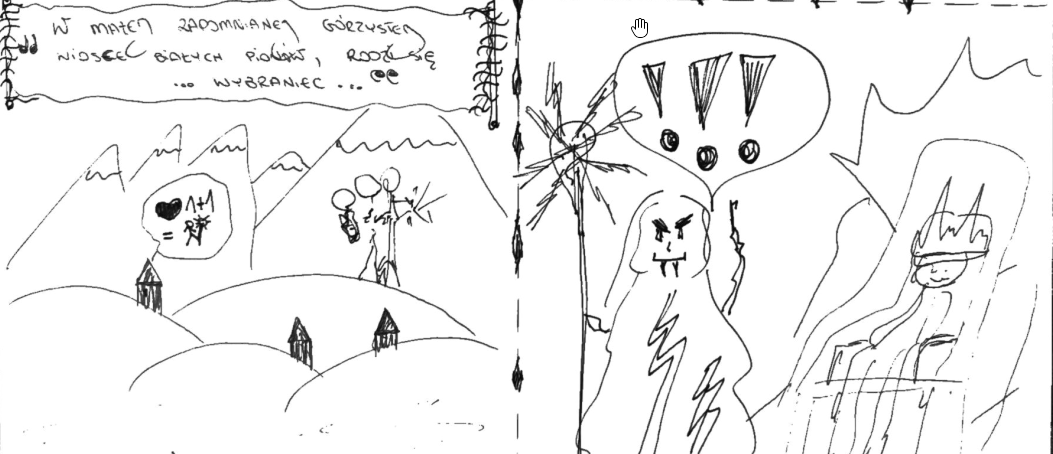 W MAŁEJ ZAPOMNIANEJ GÓRZYSTEJ
WIOSCE BIAŁYCH PIONKÓW, RODZI SIĘ
... WYBRANIEC ...
1+1
=
!!!